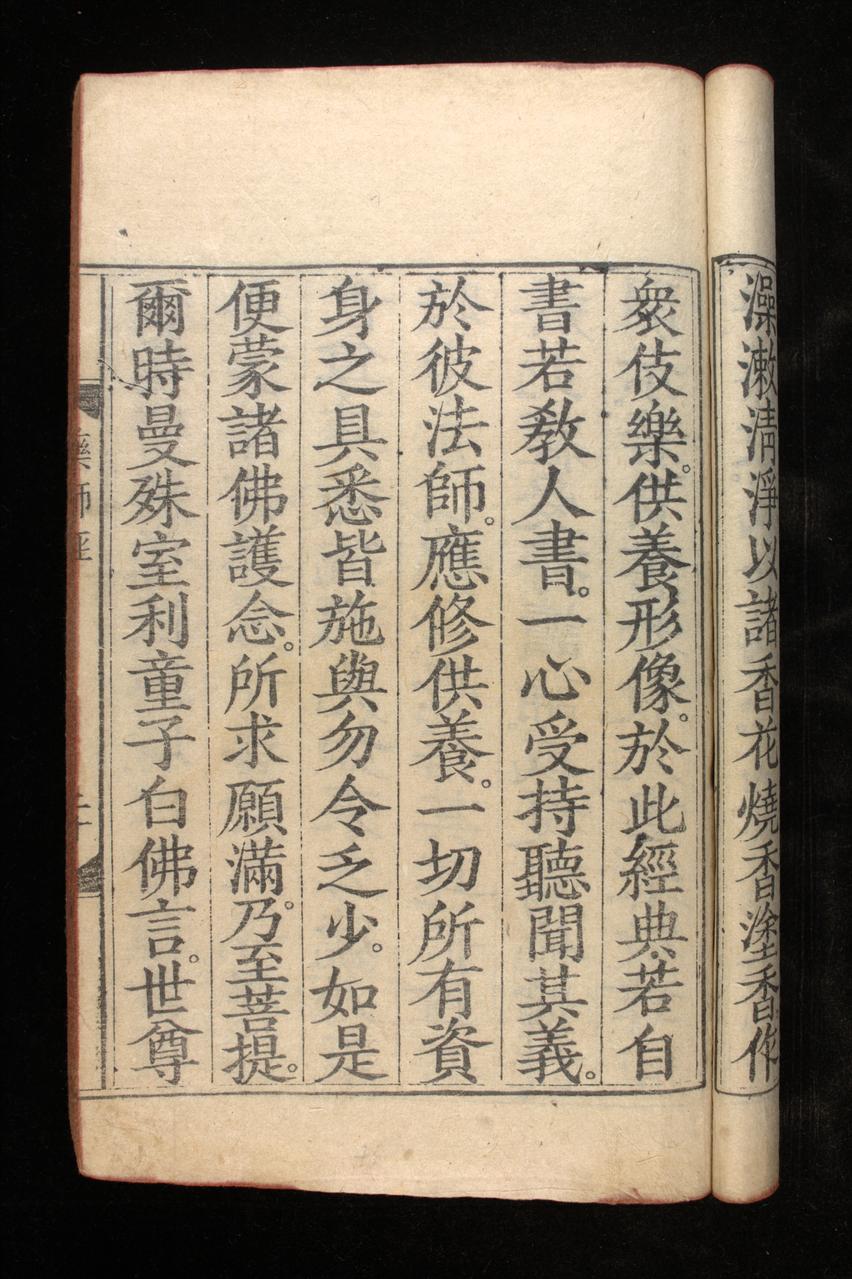 澡漱清淨以諸香花燒香塗香作
衆伎樂。供養形像。於此經典若自
書若敎人書。一心受持聽聞其義。
於彼法師。應修供養。一切所有資
身之具悉皆施與勿令乏少。如是
便蒙諸佛護念。所求願滿。乃至菩提。
爾時曼殊室利童子白佛言。世尊
藥師經